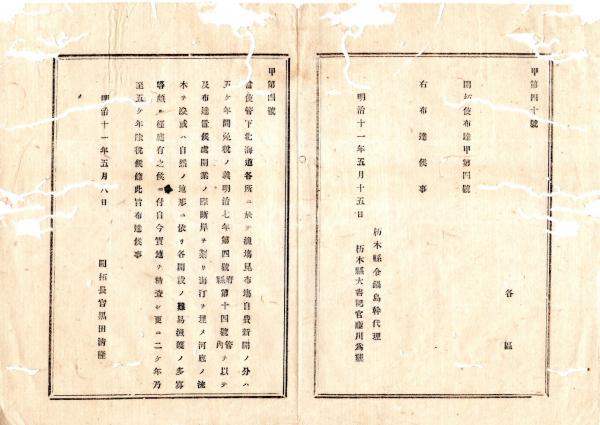 甲第四十號
各區
開拓使布達甲第四號
右布達候事
明治十一年五月十五日
栃木縣令鍋島幹代理
栃木縣大書記官藤川爲親
甲第四號
當使管下北海道各所ニ於テ漁塲昆布塲自費新開ノ分ハ
五ケ年間免税ノ義明治七年第四號府縣第十四號管内ヲ以テ
及布達置候處開業ノ際断岸ヲ割リ海汀ヲ埋メ河底ノ沈
木ヲ浚或ハ自然ノ地形ニ依リ各開設ノ難易損費ノ多寡
等頗ル徑庭有之候ニ付自今實地ヲ精査シ更ニ二ケ年乃
至五ケ年除税候條此旨布達候事
明治十一年五月八日
開拓長官黒田清隆